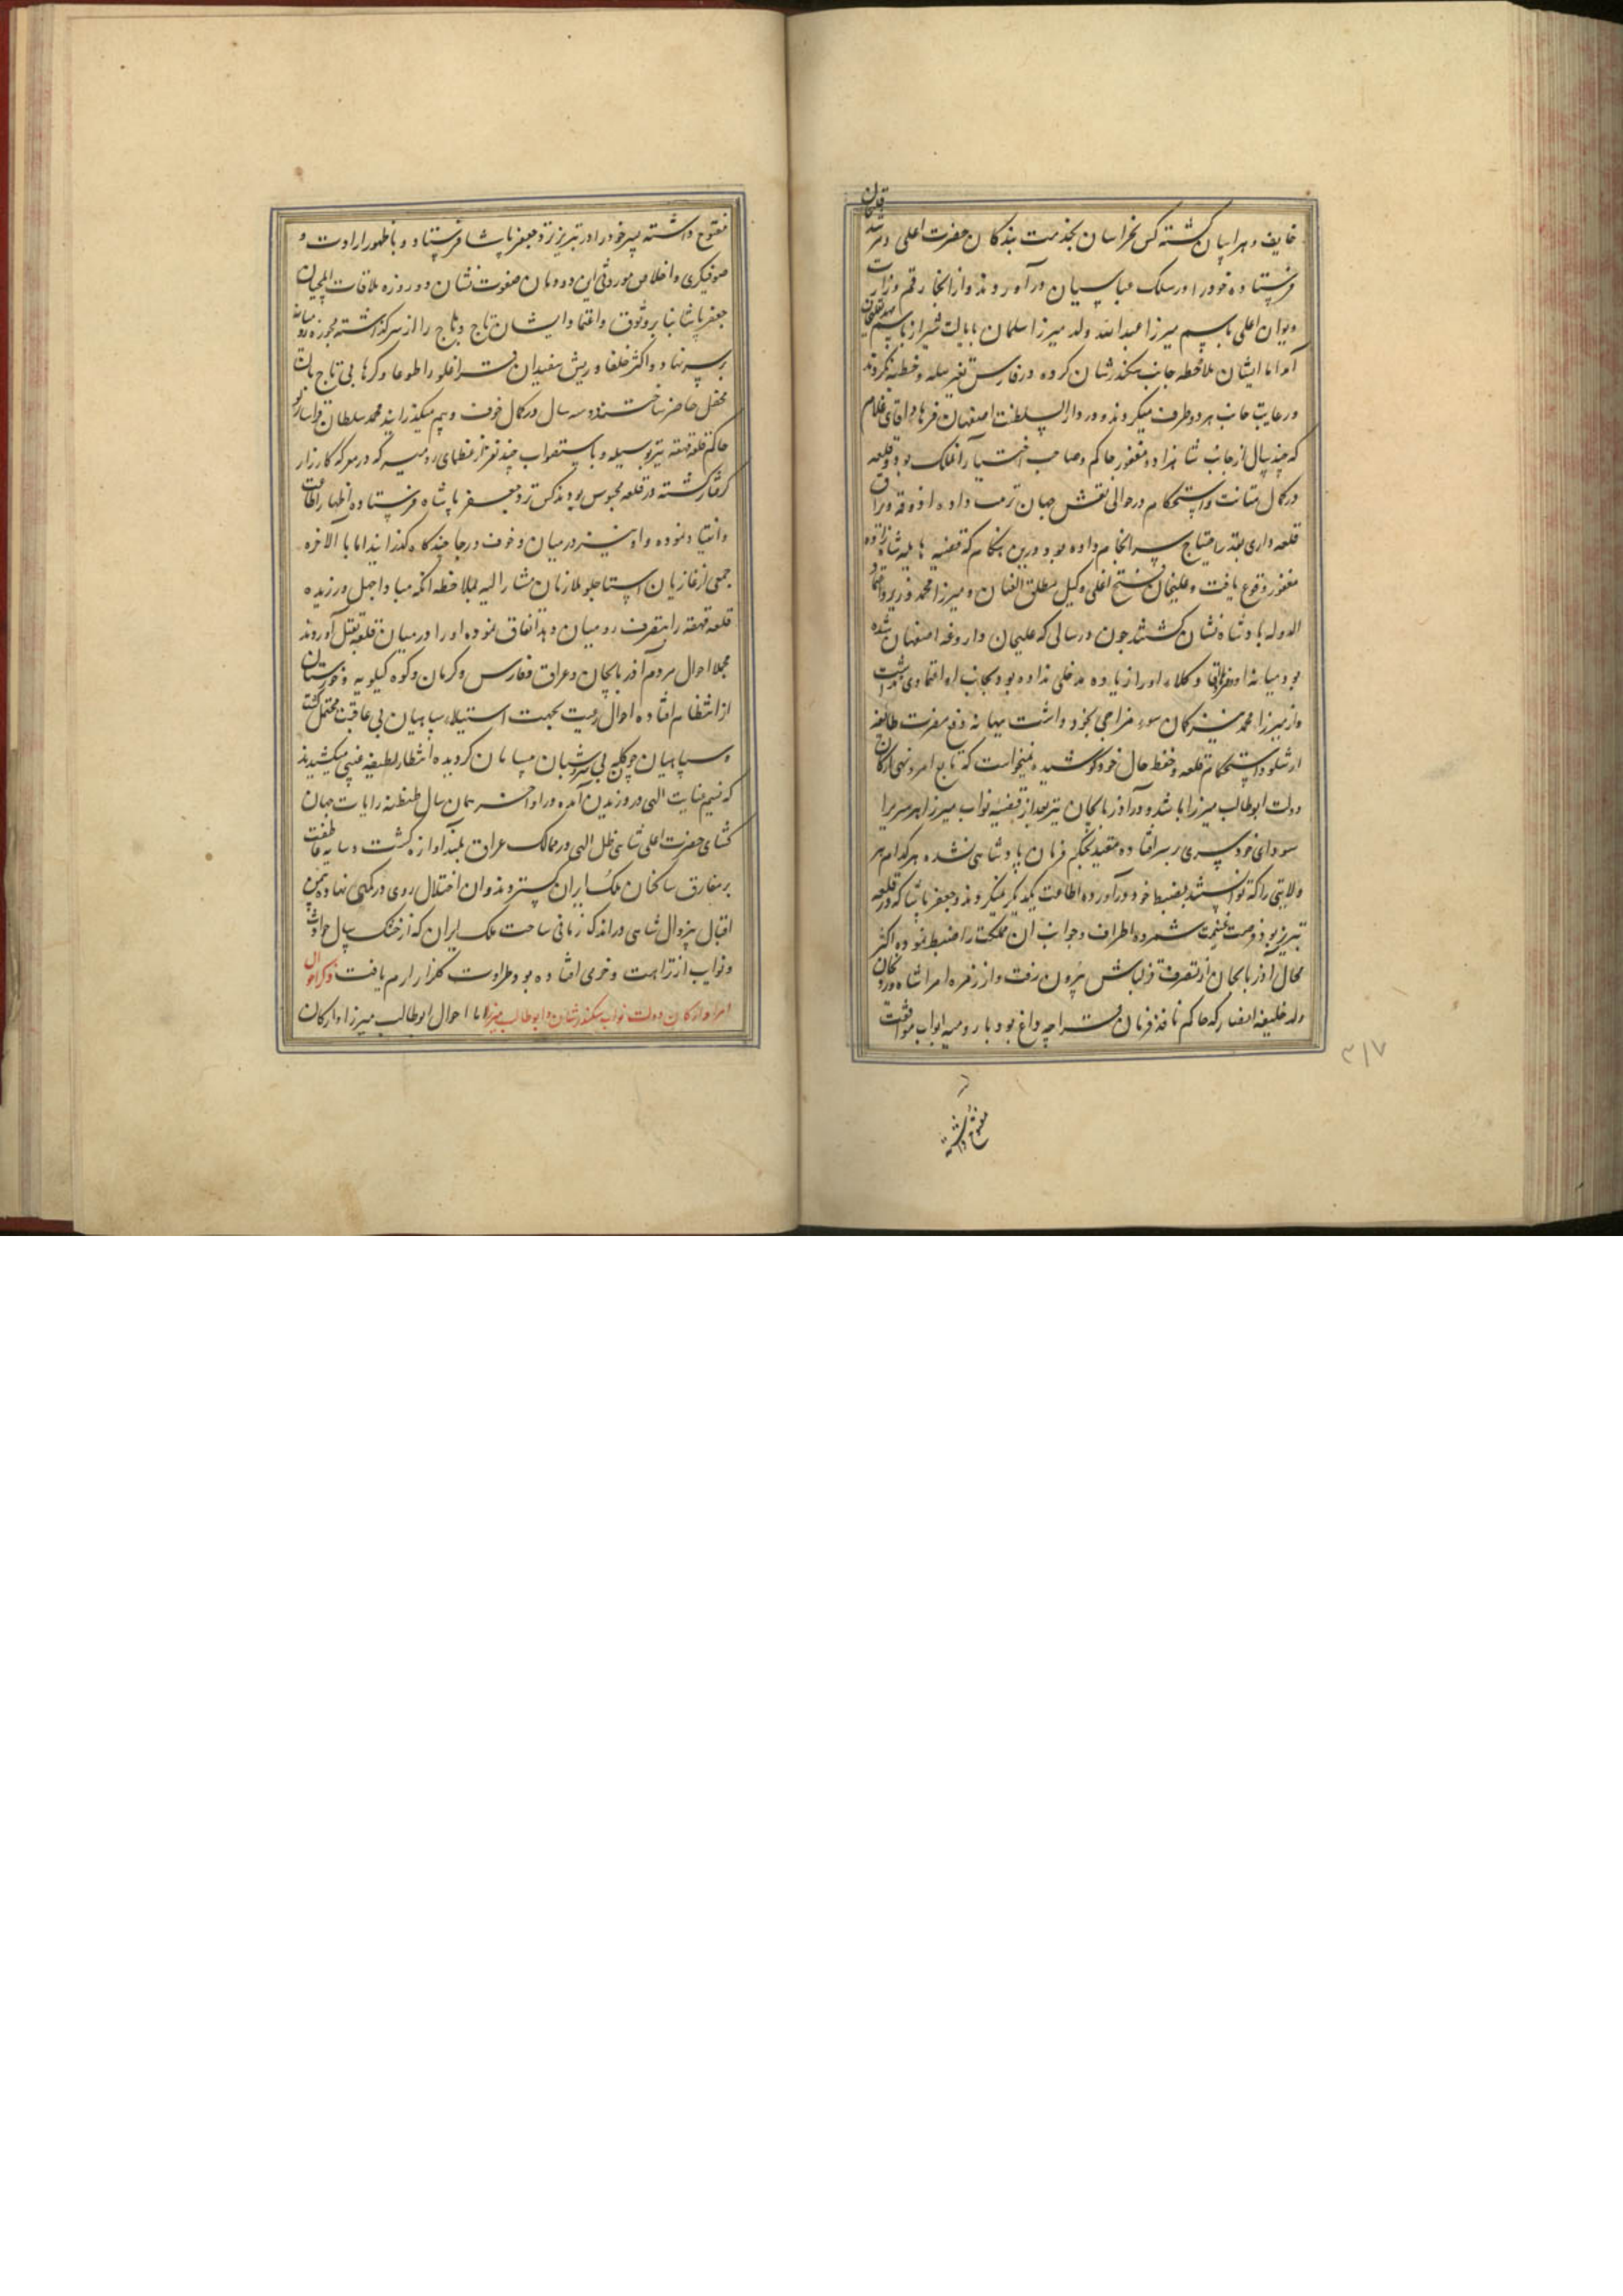 خایف و هراسان گشته کس بخراسان بخدمت بندگان حضرت اعلی و مرشد قلیخان
فرستاده خود را در سلک عباسیان درآوردند و از انجا رقم وزارت
دیوان اعلی باسم میرزا عبدالله ولد میرزا سلمان بایالت شیراز باسم مهدیقلیخان
آمد اما ایشان ملاحظه جانب سکندرشان کرده در فارس تغییر سکه و خطبه نکردند
و رعایت جانب هر دو طرف میکردند و در دار السلطنت اصفهان فرهاد اقای غلام
که چند سال از جانب شاهزاده مغفور حاکم و صاحب اختیار آنملک بود و قلعه
در کمال متانت و استحکام در حوالی نقش جهان ترتیب داده اذوقه و یراق
قلعه داری بقدر احتیاج سرانجام داده بود درین هنگام که قضیه هایله شاهزاده
مغفور وقوع یافت و علیخان فتح اغلی وکیل مطلق العنان و میرزا محمد وزیر و اعتماد
الدوله پادشاه نشان گشتند چون در سالی که علیخان داروغه اصفهان شده
بود میانه او و وکلاء او را زیاده مدخلی نداده بود بجانب او اعتمادی نداشت
و از میرزا محمد نیز گمان سوء مزاجی بخود داشت ببهانه دفع مضرت طایفه
ارشلو و استحکام قلعه و حفظ حال خود کوشیده نمیخواست که تابع امر و نهی ارکان
دولت ابوطالب میرزا باشد و در آذربایجان نیز بعد از قضیه نواب میرزا هر سر را
سودای خودسری بر سر افتاده مقید بحکم فرمان پادشاهی نشده هر کدام هر
ولایتی را که توانستند بضبط خود درآورده اطاعت یکدیگر نمیکردند و جعفر پاشا که در قلعه
تبریز بود فرصت غنیمت شمرده اطراف و جوانب ان مملکت را ضبط نموده اکثر
محال آذربایجان از تصرف قزلباش بیرون رفت و از زمره امرا شاهوردیخان
ولد خلیفه انصار که حاکم نافذ فرمان قراجه داغ بود با رومیه ابواب موافقت
مفتوح داشته
۳۱۷
مفتوح داشته پسر خود را در تبریز نزد جعفر پاشا فرستاد و با ظهور ارادت و
صوفیگری و اخلاص موروثی این دودمان صفوت نشان در روز ملاقات ایلچیان
جعفر پاشا بنا بر وثوق و اعتماد ایشان تاج وهاج را از سر گذاشته مجوزه رومیانه
بر سر نهاد و اکثر خلفا و ریش سفیدان قراغلو را طوعا و کرها بی تاج بان
محفل حاضر ساختند دو سه سال در کمال خوف و بیم میگذرانید محمد سلطان
حاکم قلعه قهقهه نیز بوسیله و باستصواب چند نفر از عظمای رومیه که در معرکه کارزار
گرفتار گشته در قلعه محبوس بودند کس نزد جعفر پاشاه فرستاده اظهار اطاعت
و انقیاد نموده و او نیز در میان خوف و رجا چندگاه گذرانید اما بالاخره
جمعی از غازیان استاجلو ملازمان مشار الیه بملاحظه انکه مبادا جهل ورزیده
قلعه قهقهه را بتصرف رومیان دهد اتفاق نموده او را در میان قلعه بقتل آوردند
مجملا احوال مردم آذربایجان و عراق و فارس و کرمان و کوه کیلویه و خوزستان
از انتظام افتاده احوال رعیت بجهت استیلاء سپاهیان بی عاقبت مختل گشت
و سپاهیان چون گله بی شبان بیسامان گردیده انتظار لطیفه غیبی میکشیدند
که نسیم عنایت الهی در وزیدن آمده در اواخر همان سال طنطنه رایات جهان
گشای حضرت اعلی شاهی ظل الهی در ممالک عراق بلند آوازه گشت و سایه عاطفت
بر مفارق ساکنان ملک ایران گستردند و ان اختلال روی در کمی نهاده بیمن
اقبال بیزوال شاهی در اندک زمانی ساحت ملک ایران که از خشک سال حوادث
و نوایب از نزاهت و خرمی افتاده بود طراوت گلزار ارم یافت ذکر احوال
امرا و ارکان دولت نواب سکندرشان و ابوطالب میرزا اما احوال ابوطالب میرزا و ارکان